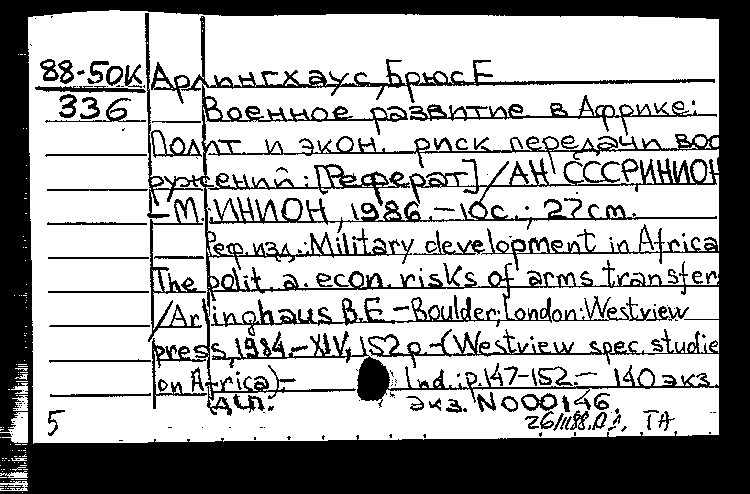 88-50К Арлингхаус, Брюс Е
336 Военное развитие в Африке:
Полит и экон. риск передачи воо
ружений: [Реферат] / АН СССР, ИНИОН
- М.: ИНИОН, 1986. - 10с.; 27cm.
Реф. изд.: Military development in Africa
The polit. a. econ. risks of arms transfer
/Arlinghaus B.E. - Boulder; London: Westview
press, 1984. - XIV, 152 p. - (Westview spec. studie
on Africa). - Ind.: p. 147-152. - 140 экз.
ДСП. экз. N000146.
5 ТА